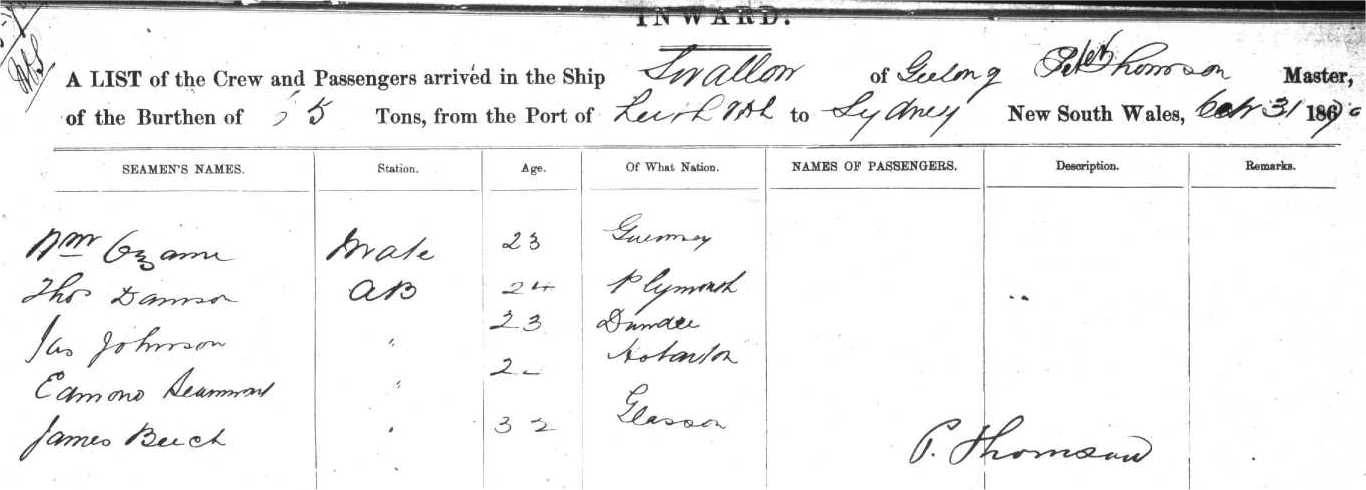 INWARD.
A LIST of the Crew and Passengers arrived in the Ship Swallow of Geelong Peter Thomson Master,
of the Burthen of 5 Tons, from the Port of to Sydney New South Wales, 31 18
SEAMEN'S NAMES. Station. Age. Of What Nation. NAMES OF PASSENGERS. Description. Remarks.
Wm Ozanne Mate 23 Guernsey
Thos Dawson AB 24 Plymouth
Jas Johnson " 23 Dundee
Edmond Beaumont "
James Beech " 32
P. Thomson